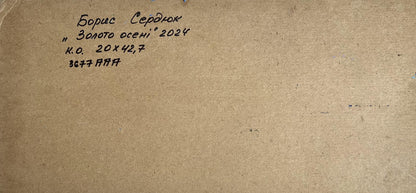 Борис Сердюк
„Золото осені" 2024
к.о. 20х42,7
3677ААА